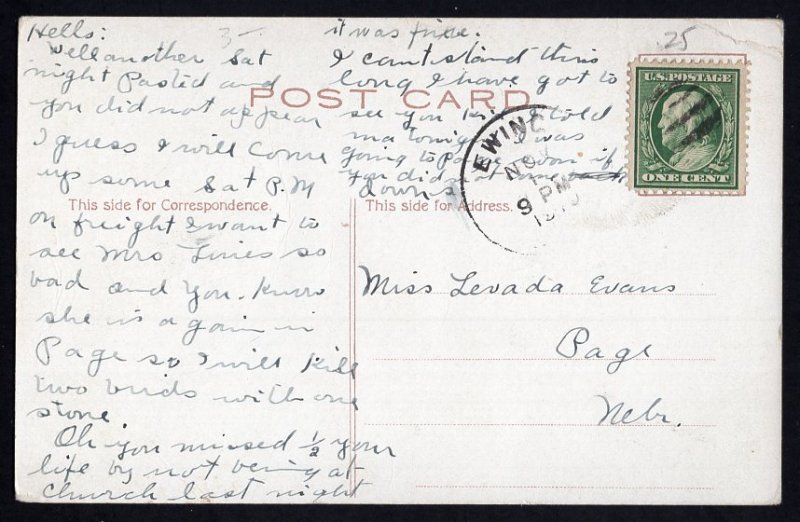 Hello:
Well another Sat
night Passed and
you did not appear
I guess I will come
up some Sat P.M
on freight I want to
see Mrs Lines so
bad and you know
she is again in
Page so I will kill
two birds with one
stone
Oh you missed 1/2 your
life by not being at
church last night
it was fine.
I cant stand this
long I have got to
see you kid I told
ma tonight I was
going to Page soon if
you didn't come
down
3-
25
POST CARD
This side for Correspondence.
This side for Address.
EWING
NOV
9 PM
U.S. POSTAGE
ONE CENT
Miss Levada Evans
Page
Nebr.